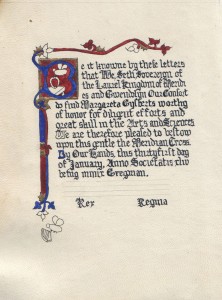 Be it knowne by these letters
that We, Seth Sovereign of
the Laurel Kingdom of Meridi
es and Gwendolyn Our Consort
do find Margareta Gijsberts worthy
of honor for diligent efforts and
great skill in the Arts and Sciences
We are therefore pleased to bestow
upon this gentle the Meridian Cross.
By Our Hands, this thirtyfirst day
of January, Anno Societatis
being mmix Gregorian.
Rex Regina